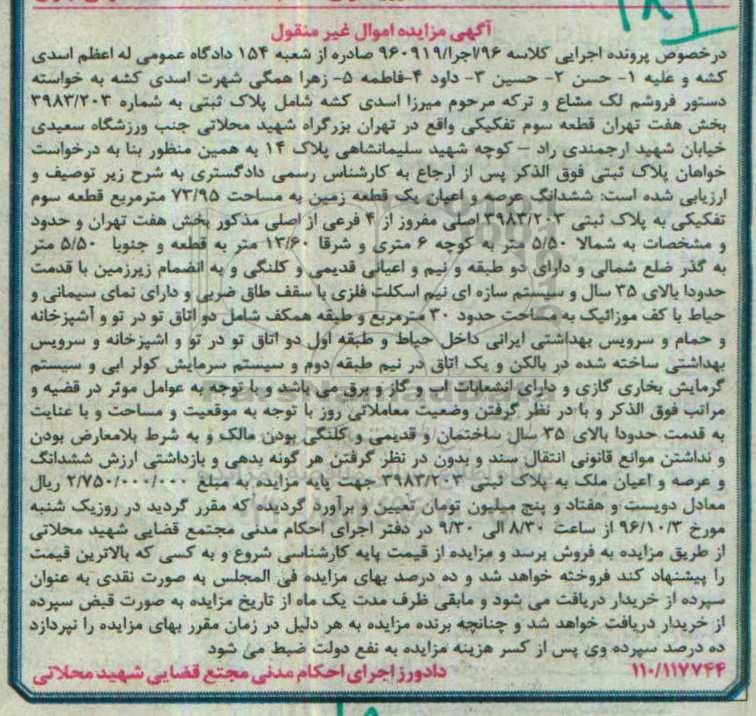 آگهی مزایده اموال غیر منقول
درخصوص پرونده اجرایی کلاسه ۹۶/اجرا/۹۶۰۹۱۹ صادره از شعبه ۱۵۴ دادگاه عمومی له اعظم اسدی
کشه و علیه ۱- حسن ۲- حسین ۳- داود ۴-فاطمه ۵- زهرا همگی شهرت اسدی کشه به خواسته
دستور فروشم لک مشاع و ترکه مرحوم میرزا اسدی کشه شامل پلاک ثبتی به شماره ۳۹۸۳/۲۰۳
بخش هفت تهران قطعه سوم تفکیکی واقع در تهران بزرگراه شهید محلاتی جنب ورزشگاه سعیدی
خیابان شهید ارجمندی راد – کوچه شهید سلیمانشاهی پلاک ۱۴ به همین منظور بنا به درخواست
خواهان پلاک ثبتی فوق الذکر پس از ارجاع به کارشناس رسمی دادگستری به شرح زیر توصیف و
ارزیابی شده است: ششدانگ عرصه و اعیان یک قطعه زمین به مساحت ۷۳/۹۵ مترمربع قطعه سوم
تفکیکی به پلاک ثبتی ۳۹۸۳/۲۰۳ اصلی مفروز از ۴ فرعی از اصلی مذکور بخش هفت تهران و حدود
و مشخصات به شمالا ۵/۵۰ متر به کوچه ۶ متری و شرقا ۱۳/۶۰ متر به قطعه و جنوبا ۵/۵۰ متر
به گذر ضلع شمالی و دارای دو طبقه و نیم و اعیانی قدیمی و کلنگی و به انضمام زیرزمین با قدمت
حدودا بالای ۳۵ سال و سیستم سازه ای نیم اسکلت فلزی با سقف طاق ضربی و دارای نمای سیمانی و
حیاط با کف موزائیک به مساحت حدود ۳۰ مترمربع و طبقه همکف شامل دو اتاق تو در تو و آشپزخانه
و حمام و سرویس بهداشتی ایرانی داخل حیاط و طبقه اول دو اتاق تو در تو و اشپزخانه و سرویس
بهداشتی ساخته شده در بالکن و یک اتاق در نیم طبقه دوم و سیستم سرمایش کولر ابی و سیستم
گرمایش بخاری گازی و دارای انشعابات اب و گاز و برق می باشد و با توجه به عوامل موثر در قضیه و
مراتب فوق الذکر و با در نظر گرفتن وضعیت معاملاتی روز با توجه به موقعیت و مساحت و با عنایت
به قدمت حدودا بالای ۳۵ سال ساختمان و قدیمی و کلنگی بودن مالک و به شرط بلامعارض بودن
و نداشتن موانع قانونی انتقال سند و بدون در نظر گرفتن هر گونه بدهی و بازداشتی ارزش ششدانگ
و عرصه و اعیان ملک به پلاک ثبتی ۳۹۸۳/۲۰۳ جهت پایه مزایده به مبلغ ۲/۷۵۰/۰۰۰/۰۰۰ ریال
معادل دویست و هفتاد و پنج میلیون تومان تعیین و برآورد گردیده که مقرر گردید در روزیک شنبه
مورخ ۹۶/۱۰/۳ از ساعت ۸/۳۰ الی ۹/۳۰ در دفتر اجرای احکام مدنی مجتمع قضایی شهید محلاتی
از طریق مزایده به فروش برسد و مزایده از قیمت پایه کارشناسی شروع و به کسی که بالاترین قیمت
را پیشنهاد کند فروخته خواهد شد و ده درصد بهای مزایده فی المجلس به صورت نقدی به عنوان
سپرده از خریدار دریافت می شود و مابقی ظرف مدت یک ماه از تاریخ مزایده به صورت قبض سپرده
از خریدار دریافت خواهد شد و چنانچه برنده مزایده به هر دلیل در زمان مقرر بهای مزایده را نپردازد
ده درصد سپرده وی پس از کسر هزینه مزایده به نفع دولت ضبط می شود
۱۱۰/۱۱۷۷۴۴ دادورز اجرای احکام مدنی مجتع قضایی شهید محلاتی